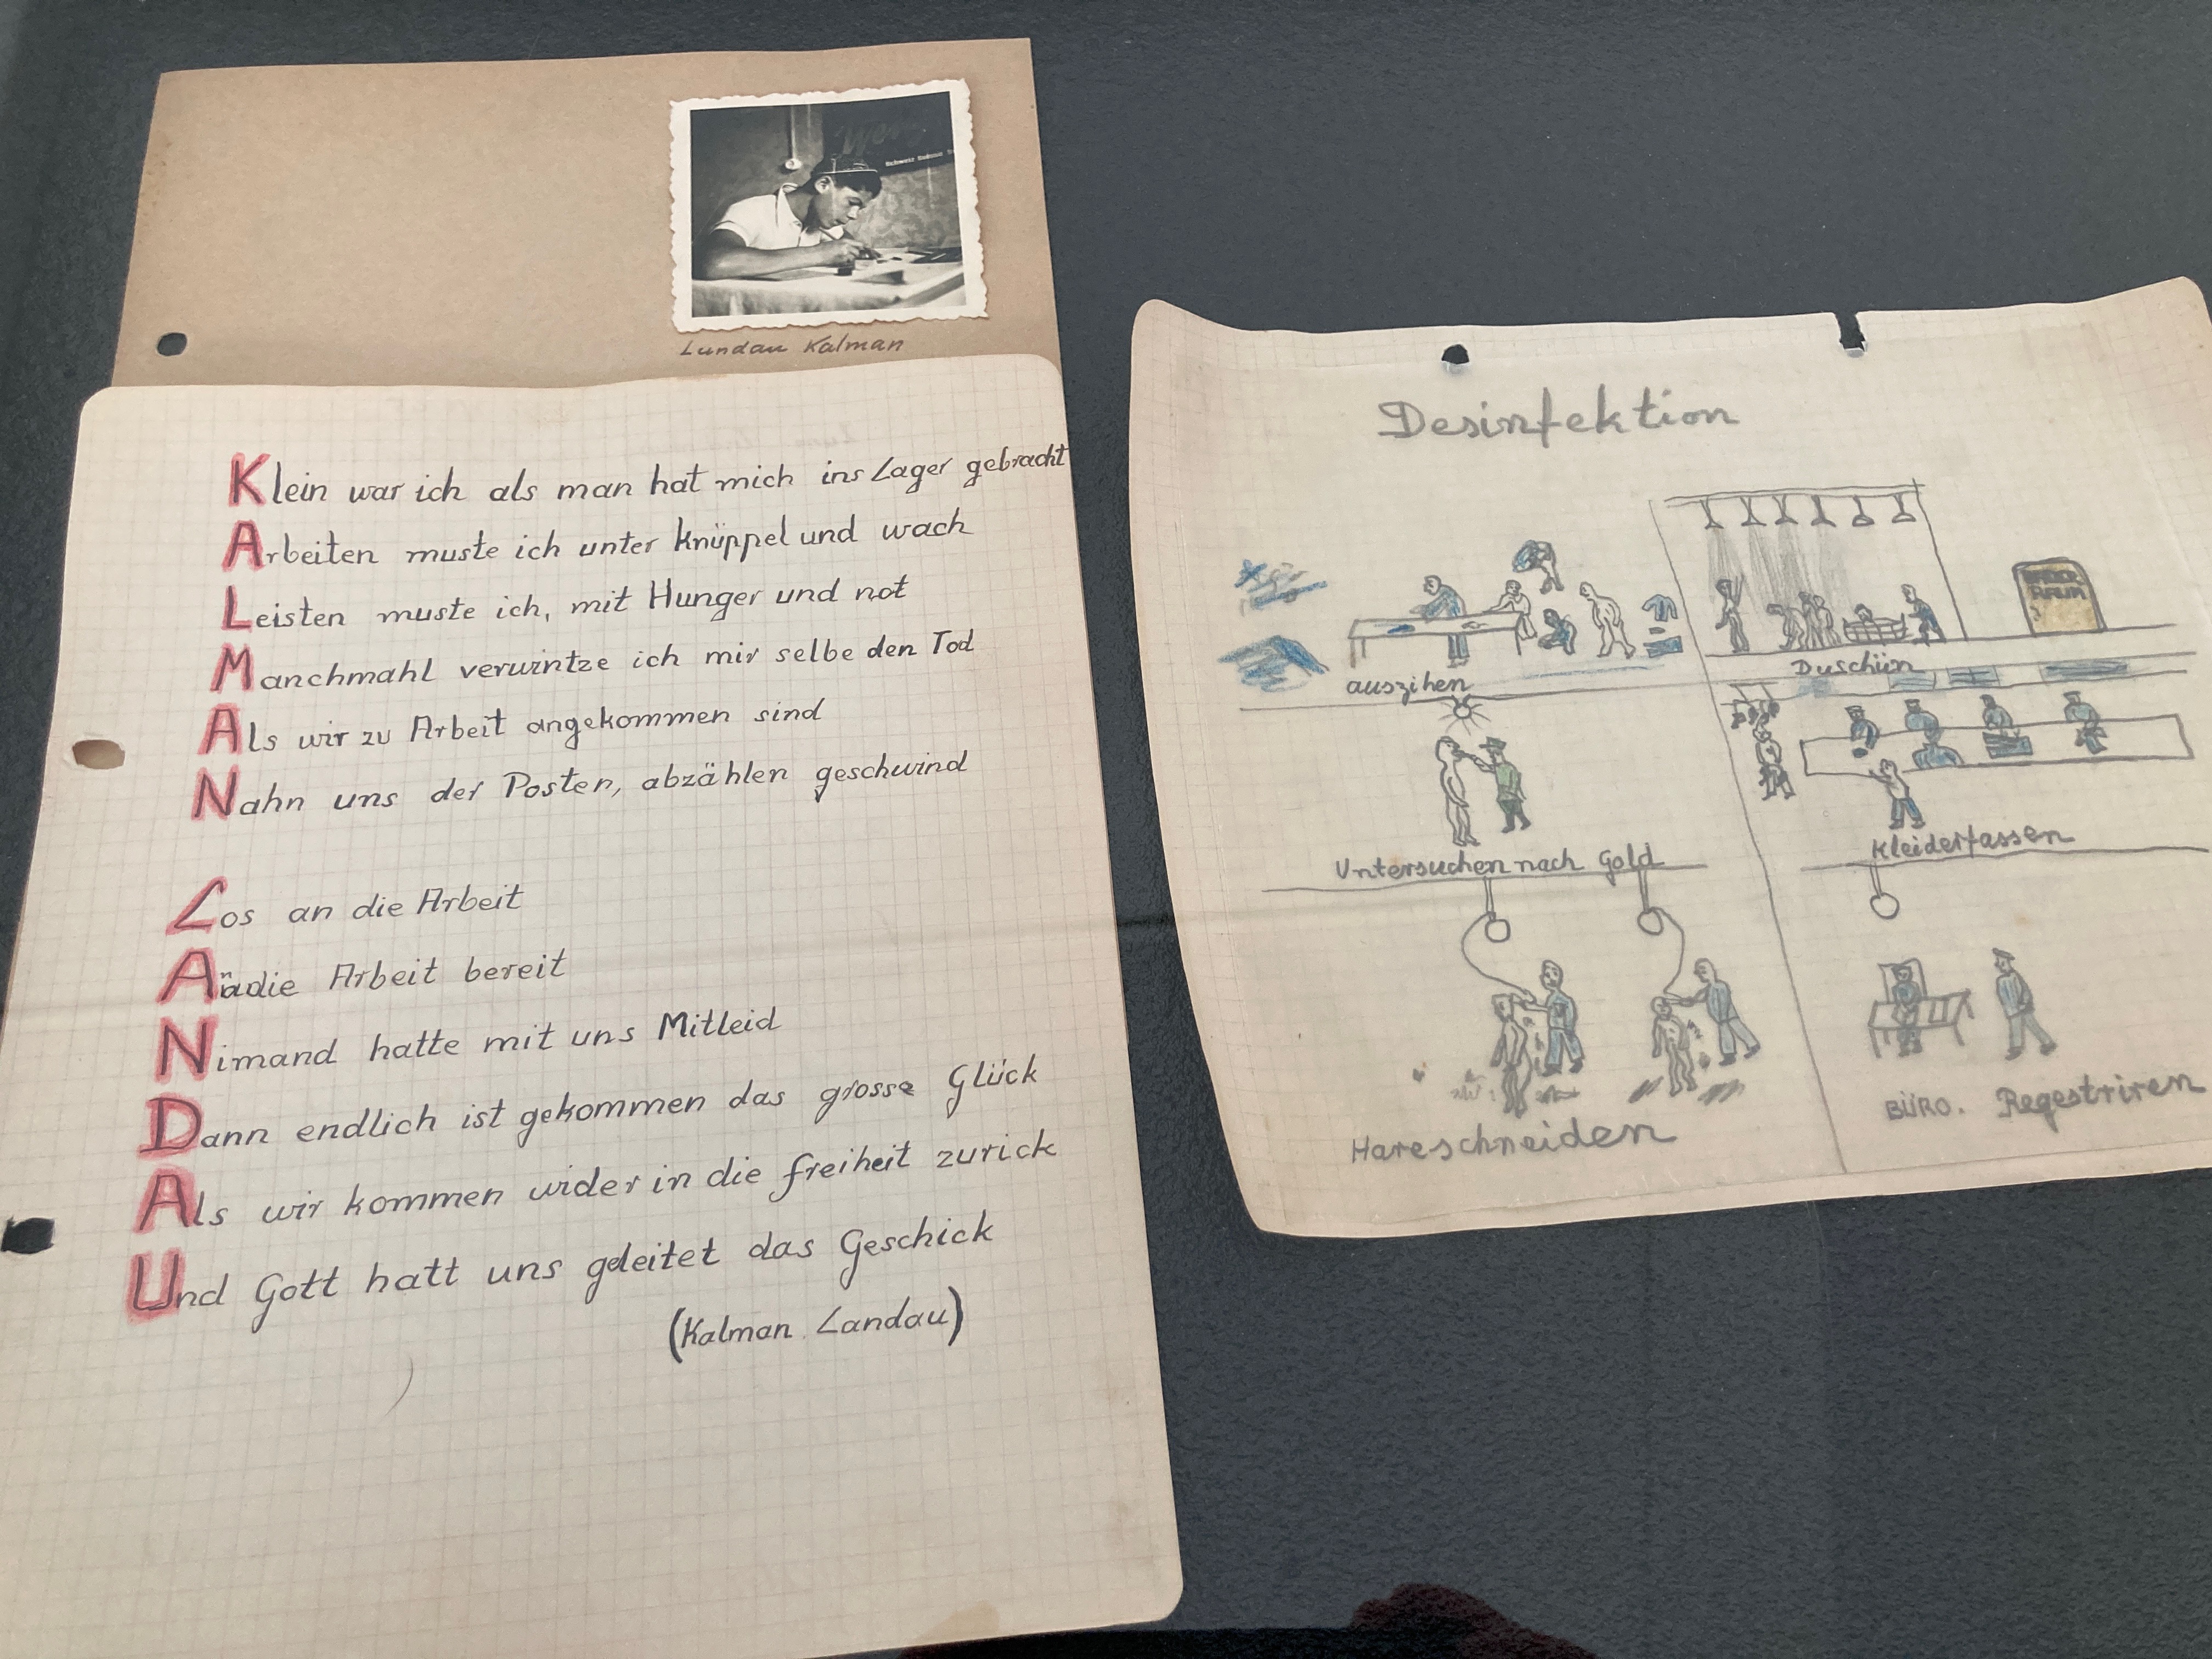 Landau Kalman
Klein war ich als man hat mich ins Lager gebracht
Arbeiten muste ich unter Knüppel und wach
Leisten muste ich, mit Hunger und not
Manchmahl verwintze ich mir selbe den Tod
Als wir zu Arbeit angekommen sind
Nahn uns der Posten, abzählen geschwind
Los an die Arbeit
An die Arbeit bereit
Nimand hatte mit uns Mitleid
Dann endlich ist gekommen das grosse Glück
Als wir kommen wider in die freiheit zurick
Und Gott hatt uns geleitet das Geschick
(Kalman Landau)
Desinfektion
auszihen
Duschün
Untersuchen nach Gold
Kleiderfassen
Hareschneiden
BÜRO. Regestriren